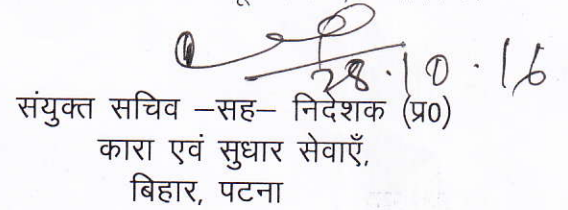 28.10.16
संयुक्त सचिव –सह– निदेशक (प्र0)
कारा एवं सुधार सेवाएँ,
बिहार, पटना